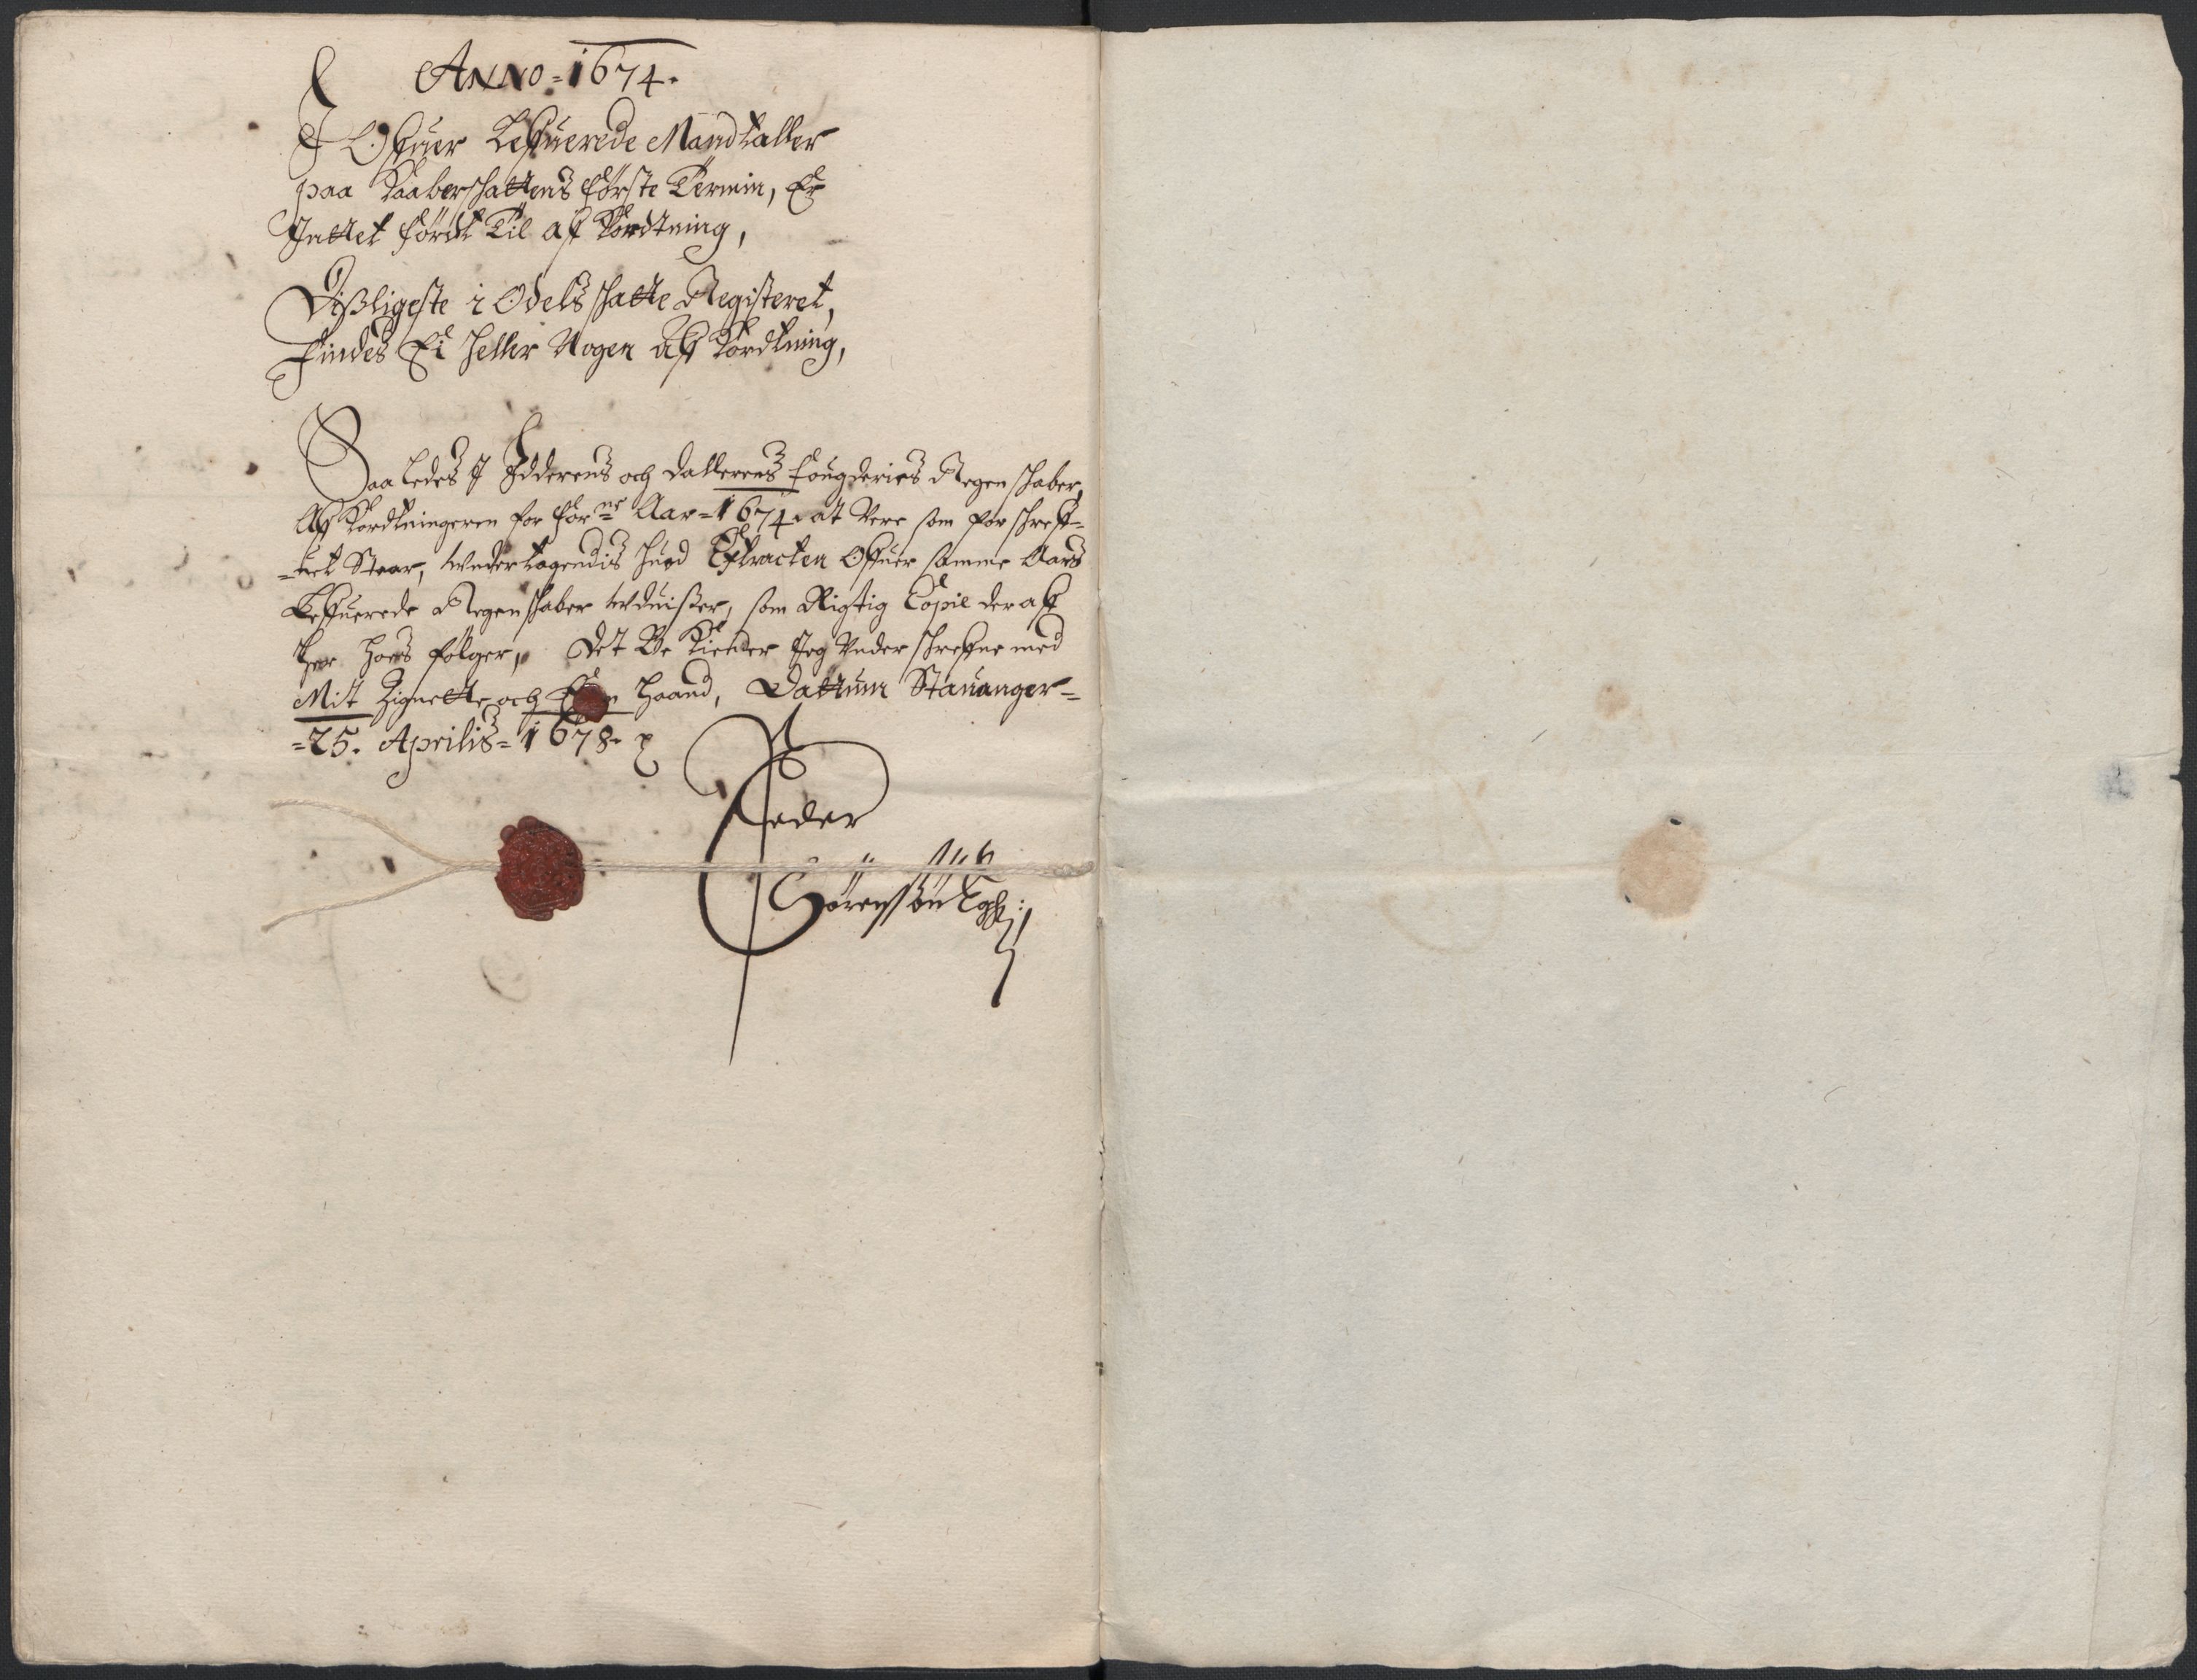 Anno = 1674.
I Offuer Leffuerede Mandtaller
paa Kaaberschattens første Termin, Er
Inttet Førdt Til aff Kordtning,
Dißligeste i Odelsschatte Registeret,
Findes Ei heller Nogen Aff Kordtning,
Saaledes I Jdderens och Dallerens Fougderies Regenschaber,
Aff Kordtningeren for for.ne Aar = 1674. at Vere som forschreff-
-uet Staar, Vndertagendis huad Extracten Offuer samme Aars
Leffuerede Regenschaber Vduißer, som Rigtig Copie der aff
her hoes følger, Det Be Kiender Jeg Vnderschreffne med
Mit Zignette och Egen Haand, Dattum Stauanger =
= 25. Aprilis = 1678.
Peder
Sørenssøn